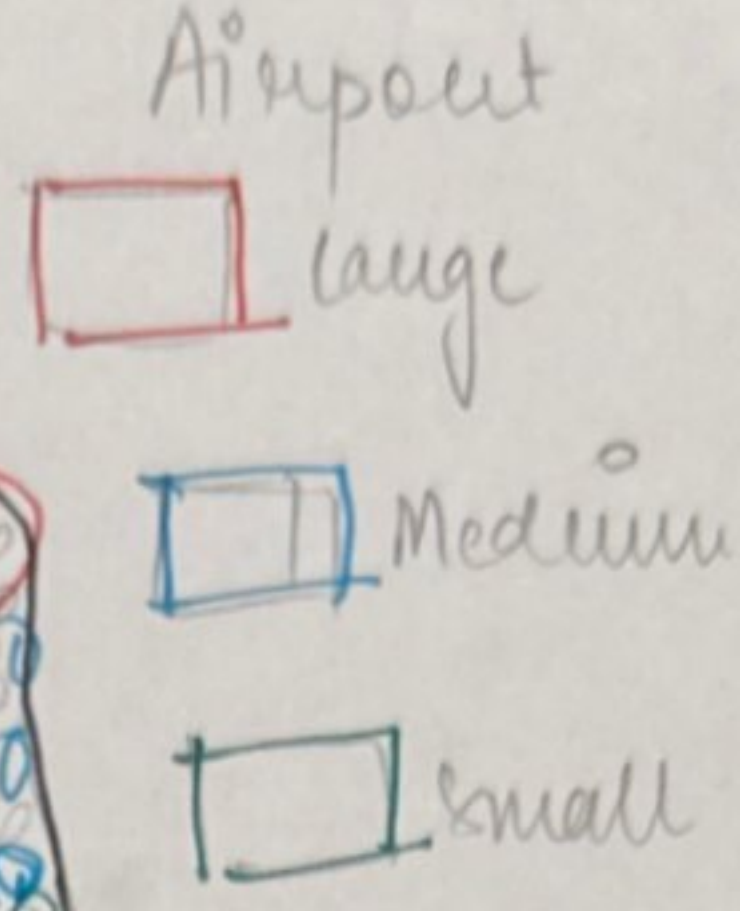 Airport
Large
Medium
small